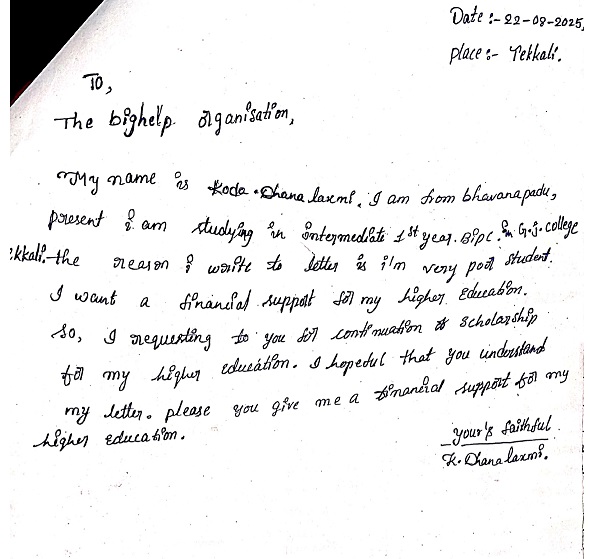 Date :- 22-08-2025,
place :- Tekkali.
To,
The bighelp organisation,
My name is Koda. Dhana laxmi. I am from bhavanapadu,
present i am studying in intermediate 1st year. Bipc. in G.j. college
ekkali. the reason i write to letter is i'm very poor student.
I want a financial support for my higher Education.
So, I requesting to you for continuation of scholarship
for my higher education. I hopeful that you understand
my letter. please you give me a financial support for my
higher education.
your's faithful
K. Dhana laxmi.